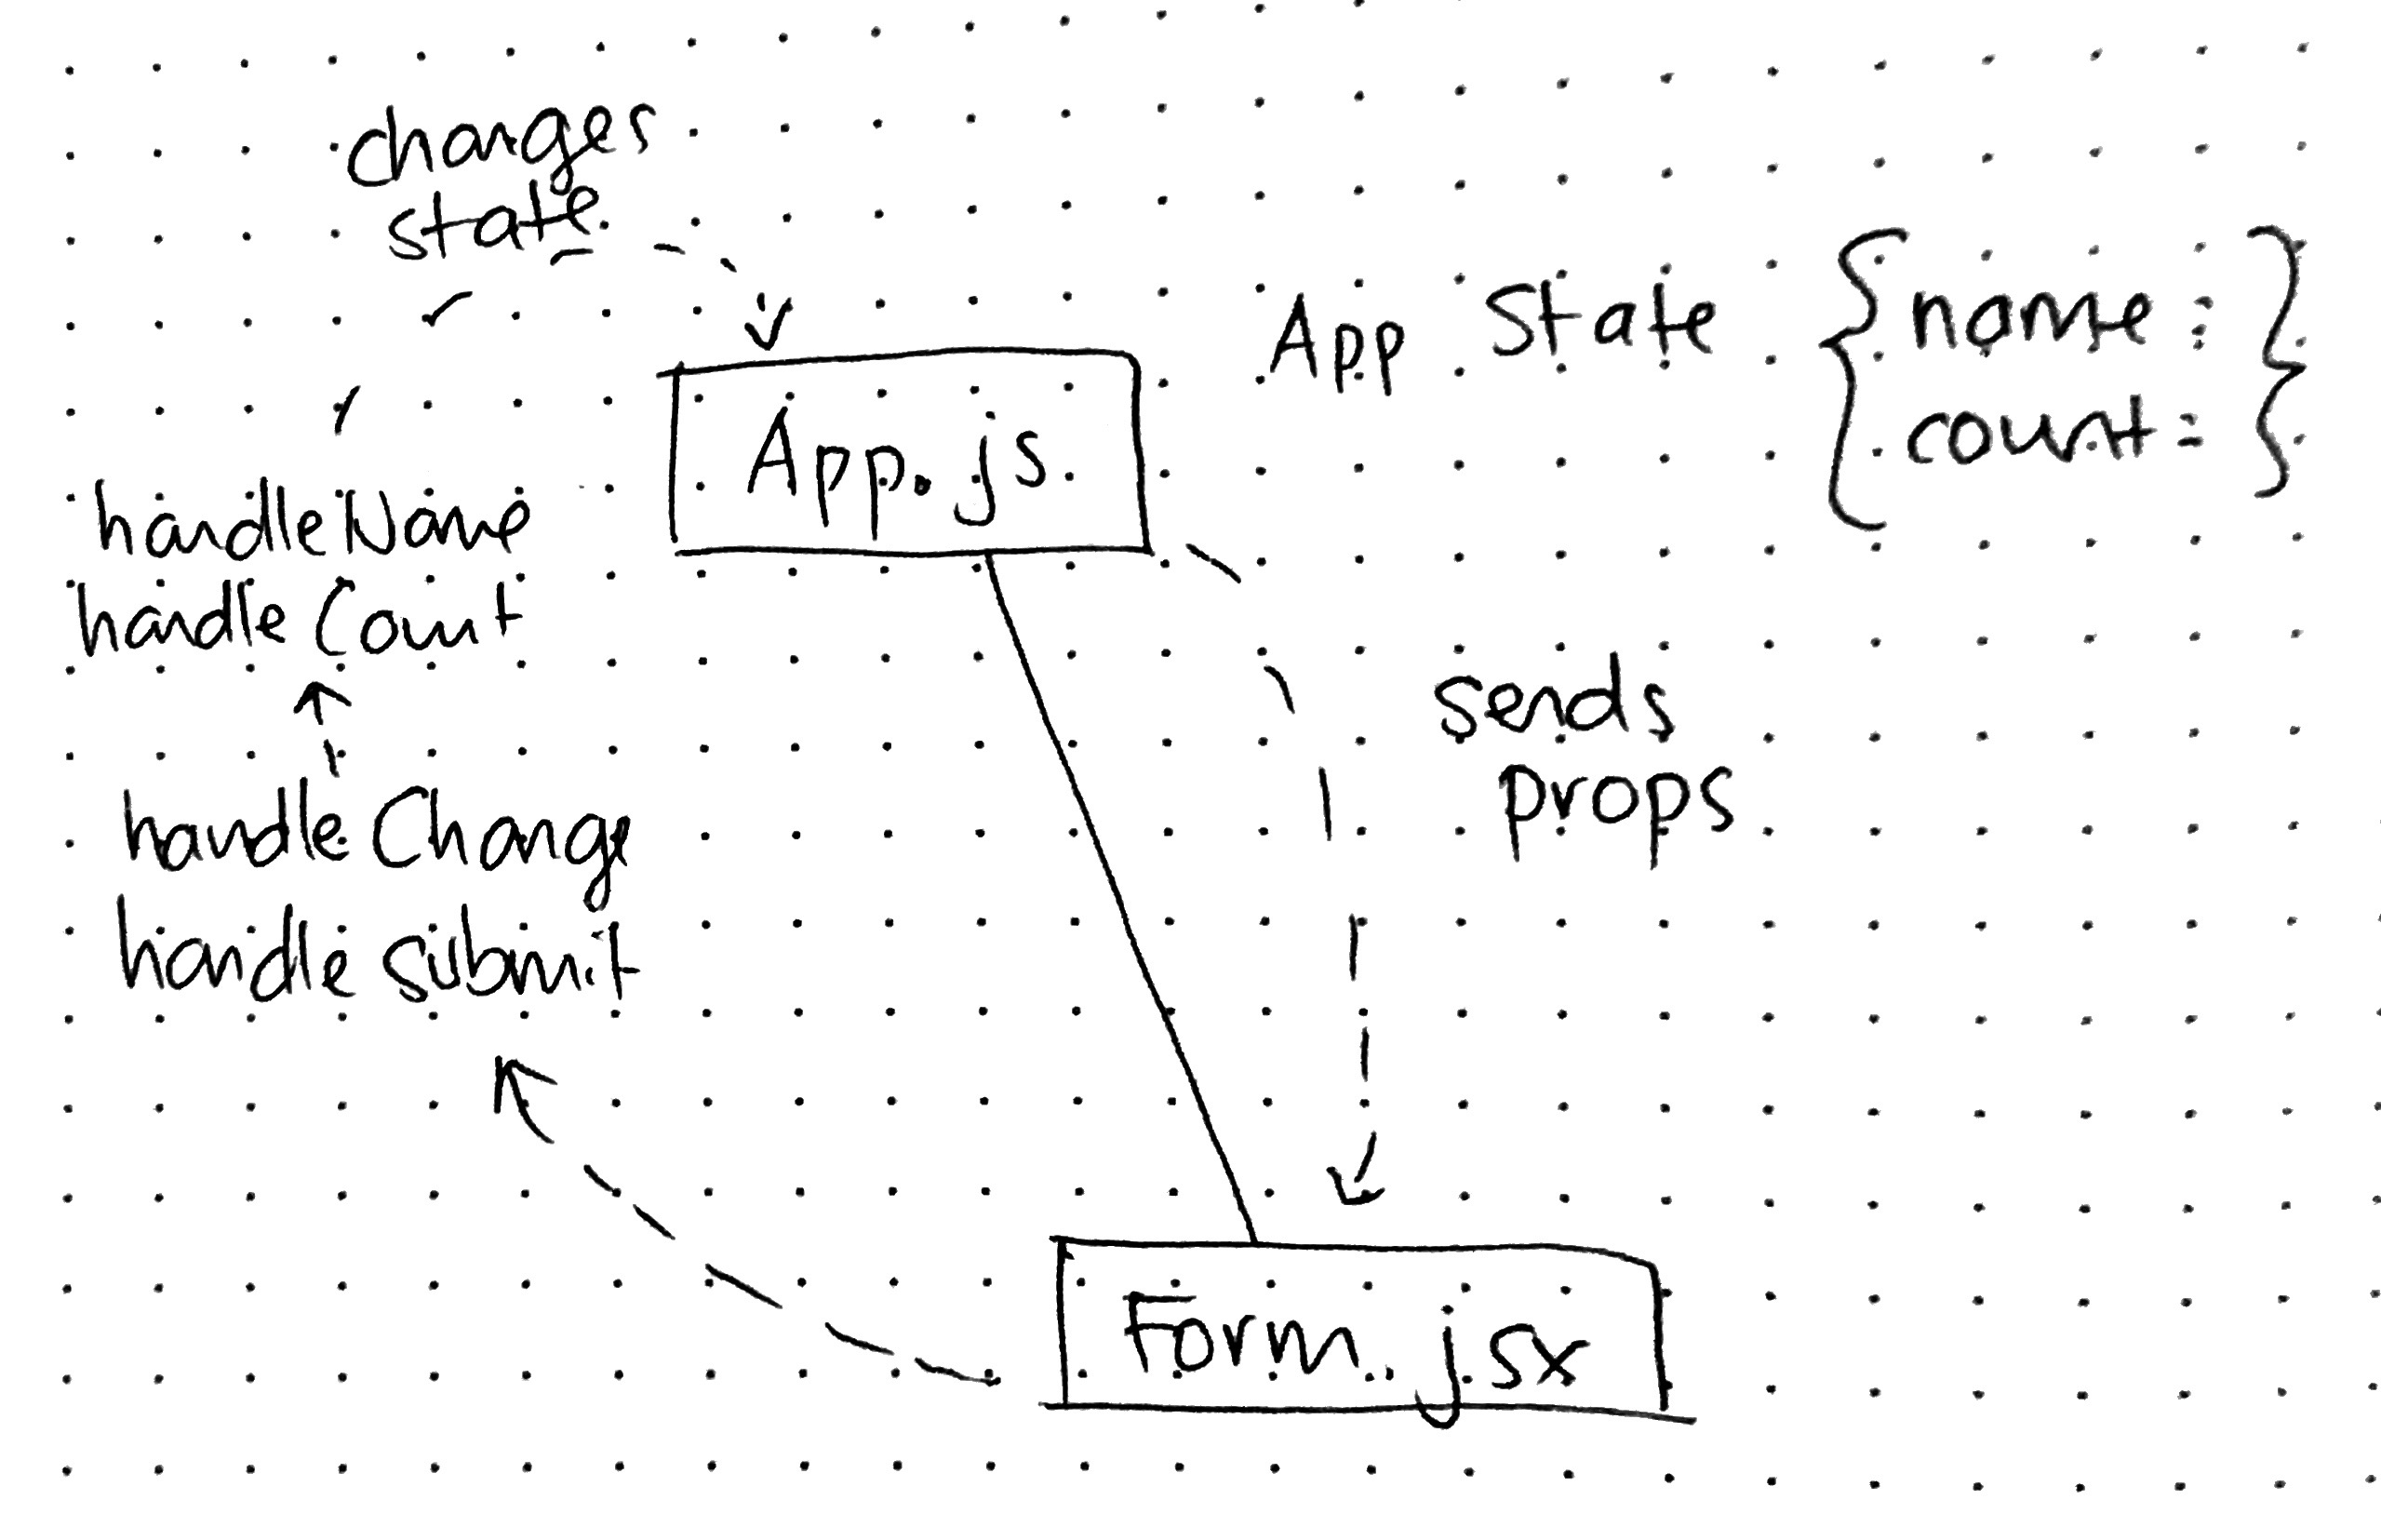 changes
state
App State { name :
count : }
App.js
handleName
handleCount
sends
props
handleChange
handle submit
Form.jsx